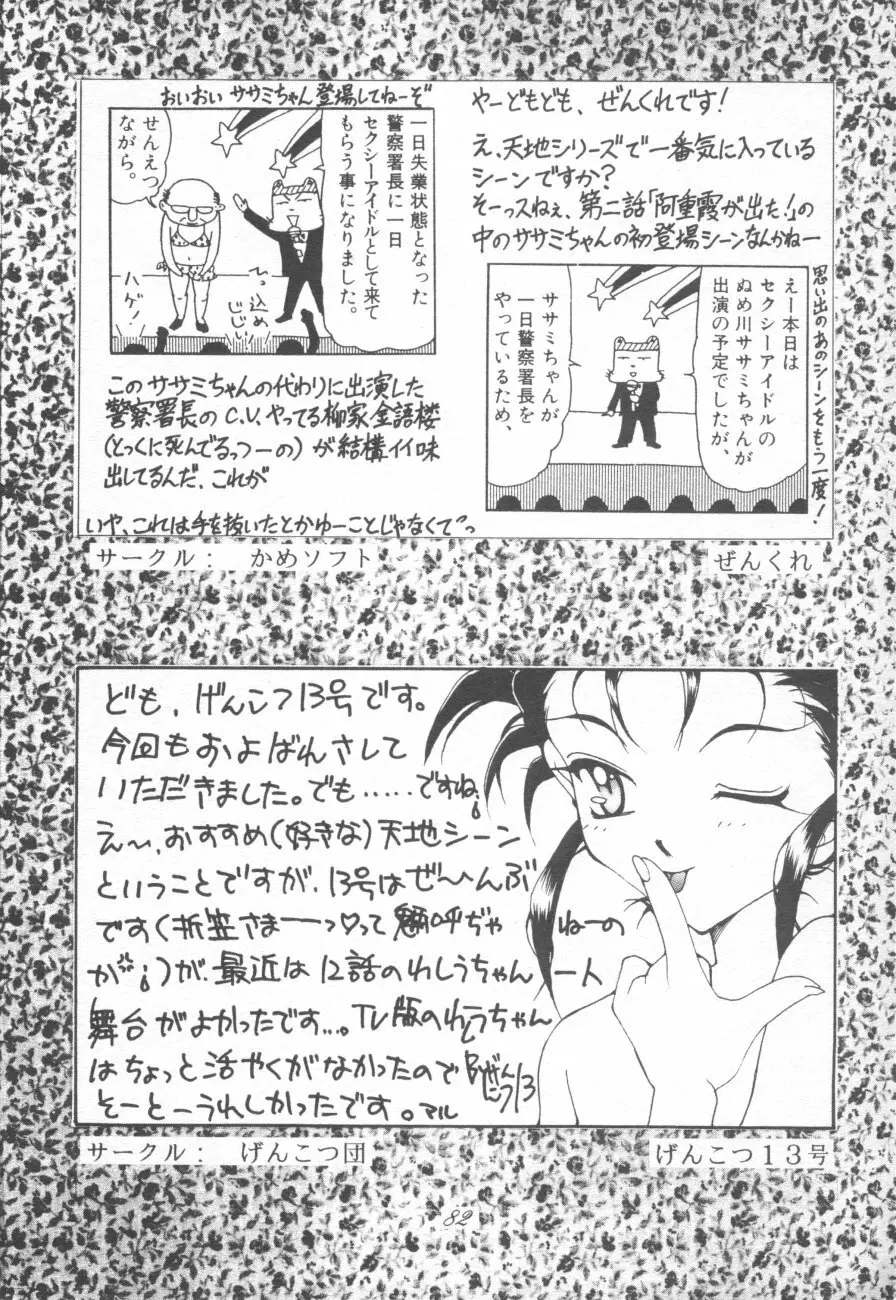 やーどもども、ぜんくれです!
え、天地シリーズで一番気に入っている
シーンですか?
そーっスねぇ、第二話「阿重霞が出た!」の
中のササミちゃんの初登場シーンなんかねー
思い出のあのシーンをもう一度!
えー本日は
セクシーアイドルの
ぬめ川ササミちゃんが
出演の予定でしたが、
ササミちゃんが
一日警察署長を
やっているため、
おいおいササミちゃん登場してねーぞ
一日失業状態となった
警察署長に一日
セクシーアイドルとして来て
もらう事になりました。
せんえつ
ながら。
ひっ込め
じじい!
ハゲ!
このササミちゃんの代わりに出演した
警察署長のC.V.やってる柳家金語楼
(とっくに死んでるっつーの)が結構イイ味
出してるんだ、これが
いや、これは手を抜いたとかゆーことじゃなくてっ
サークル: かめソフト
ぜんくれ
ども、げんこつ13号です。
今回もおよばれさして
いただきました。でも……ですね、
え〜、おすすめ(好きな)天地シーン
ということですが、13号はぜ〜んぶ
です(折笠さまーっ♡って
ねーの
が、)が、最近は12話のわしうちゃん
ート
舞台がよかったです…。TV版のわしうちゃん
はちょっと活やくがなかったので
そーとーうれしかったです。マル
げんこつ13
サークル: げんこつ団
げんこつ13号
82